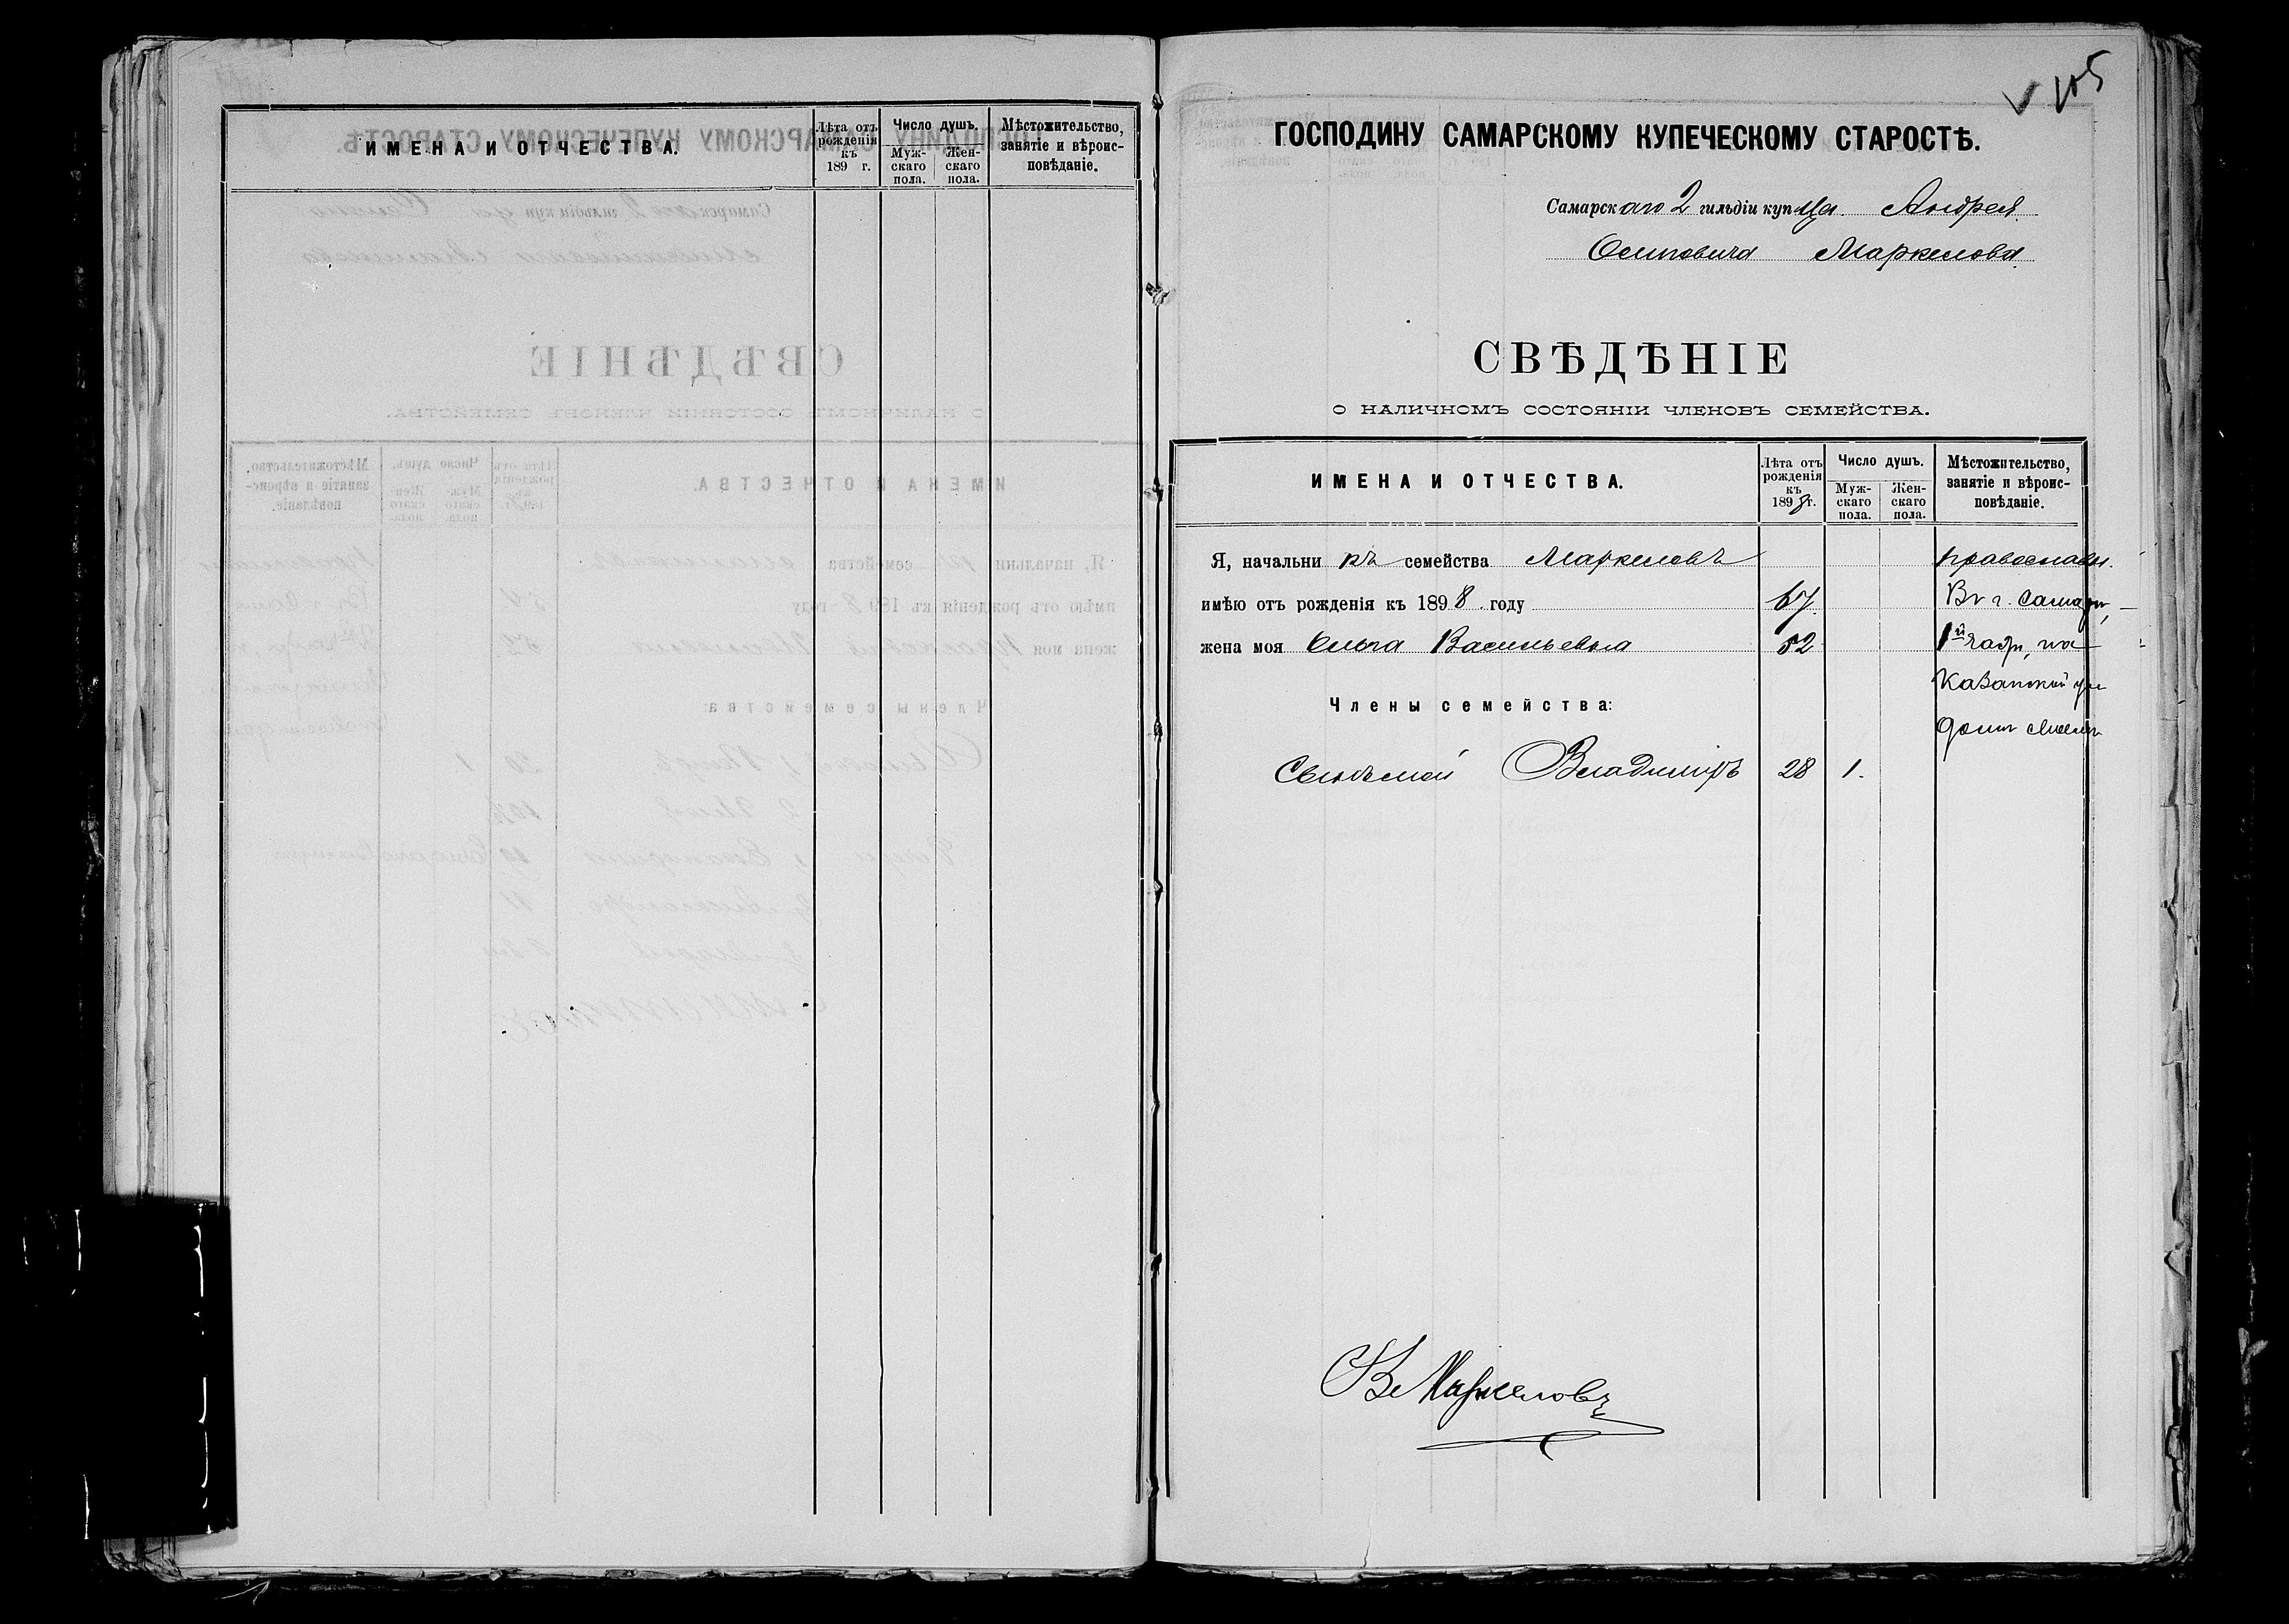 ИМЕНА И ОТЧЕСТВА.
Лѣта отъ рожденія къ 189 г.
Число душъ.
Мужскаго пола.
Женскаго пола.
Мѣстожительство, занятіе и вѣроисповѣданіе.
105
ГОСПОДИНУ САМАРСКОМУ КУПЕЧЕСКОМУ СТАРОСТѢ.
Самарскаго 2 гильдіи купца Андрея
Осиповича Маркелова.
СВѢДѢНІЕ
О НАЛИЧНОМЪ СОСТОЯНІИ ЧЛЕНОВЪ СЕМЕЙСТВА.
ИМЕНА И ОТЧЕСТВА.
Лѣта отъ рожденія къ 1898 г.
Число душъ.
Мужскаго пола.
Женскаго пола.
Мѣстожительство, занятіе и вѣроисповѣданіе.
Я, начальникъ семейства Маркеловъ православн.
имѣю отъ рожденія къ 1898 году 67 Въ г. Самарѣ,
жена моя Ольга Васильевна 52 1й части, на
Казанской ул
Члены семейства:
домъ
Владиміръ 28 1.
Вл Маркеловъ